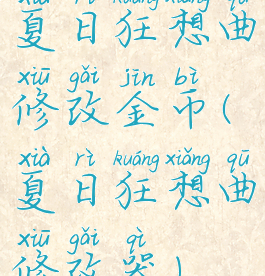 xià rì kuáng xiǎng qǔ
夏日狂想曲
xiū gǎi jīn bì
修改金币(
xià rì kuáng xiǎng qū
夏日狂想曲
xiū gǎi qì
修改器)